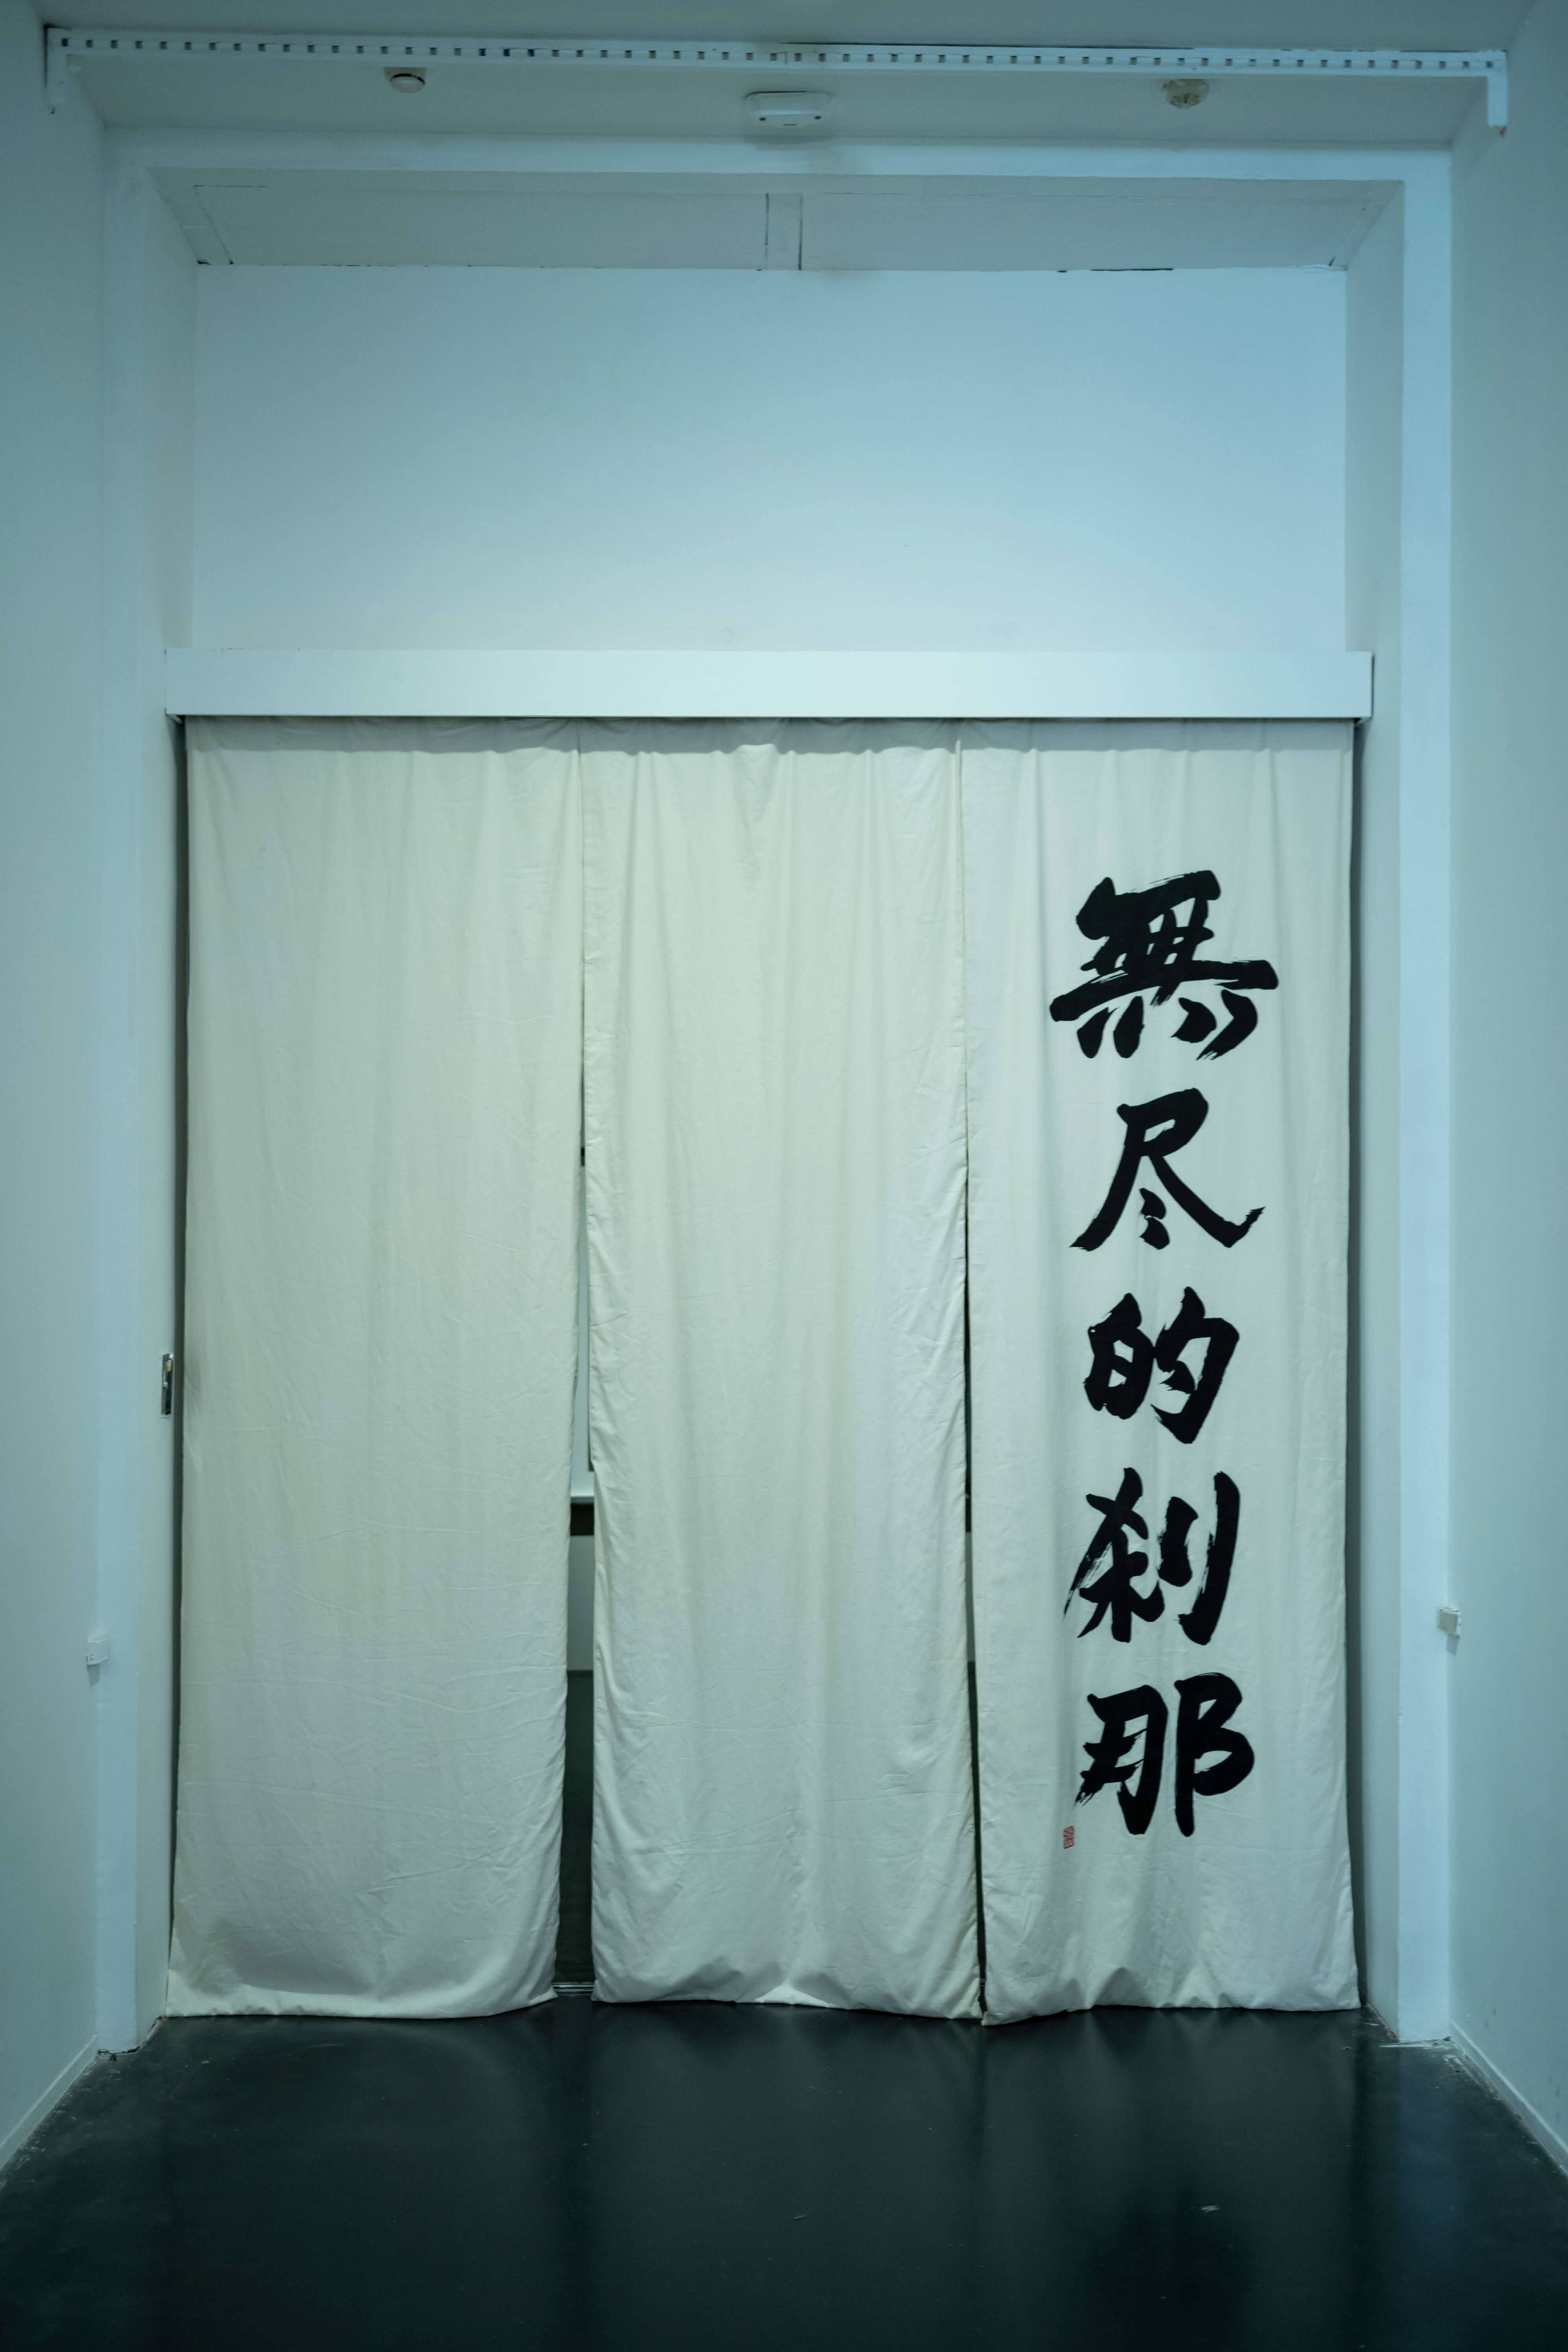 無尽的刹那